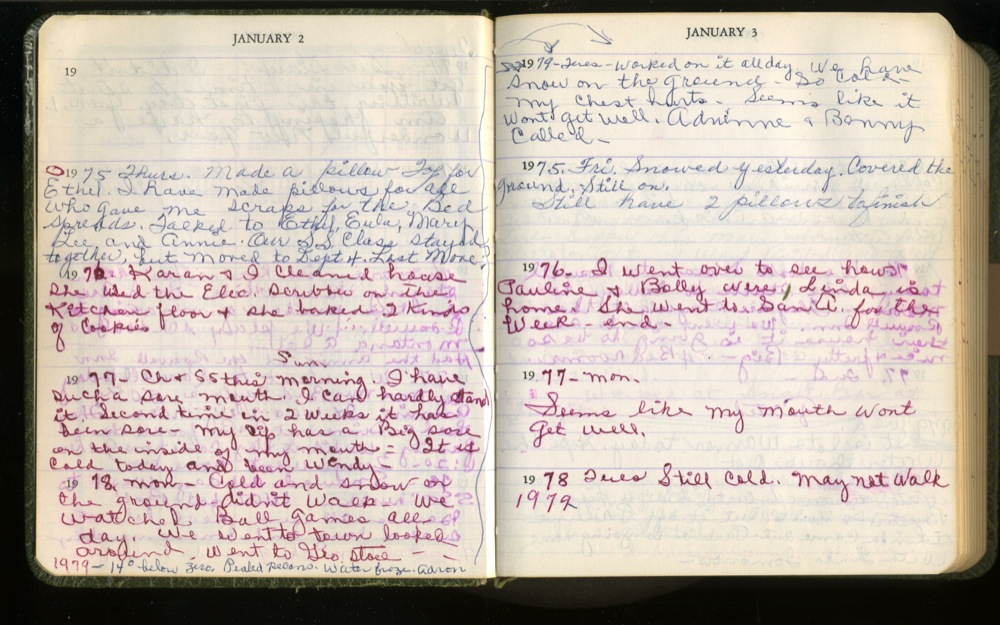 JANUARY 2
19
1975 Thurs. Made a pillow Top for
Ethel. I have made pillows for all
who gave me scraps for the Bed
Spreads. Talked to Ethel, Eula, Mary
Lee, and Annie. Our SS Class stayed
together, but moved to Dept 4. Last Move?
1976 Karan & I cleaned house
She used the Elec. scrubber on the
Kitchen floor & she baked 2 kinds
of Cookies
Sun
1977- Ch & SS this morning. I have
such a sore mouth I can hardly stand
it Second time in 2 weeks it has
been sore- my lip has a Big sore
on the inside of my mouth - It is
cold today and been windy-
1978. mon- Cold and snow on
the ground didn't walk- We
watched Ball games all
day. We went to town looked
around. went to store -
1979- 14° below zero. Pealed pecans. Water froze. Aaron
JANUARY 3
1979-Tues- Worked on it all day. We have
snow on the ground- So cold-
my chest hurts. Seems like it
wont get well. & Benny
Called-
1975. Fri. Snowed yesterday. Covered the
ground, Still on.
Still have 2 pillows to finish
1976- I went over to see how
Pauline & Bolly were, Linda is
home. She went to Santa. for the
Week-end-
1977- mon.
Seems like my mouth wont
get well.
1978 Tues Still cold. May not Walk
1979